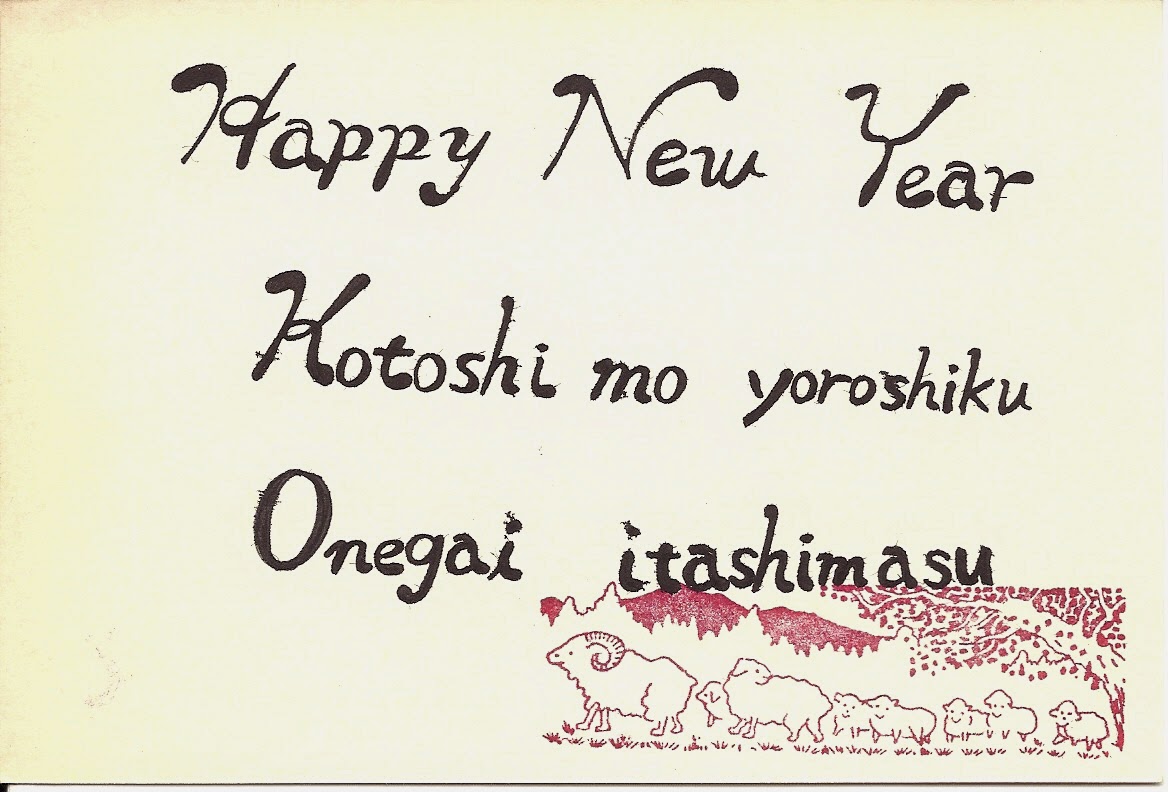 Happy New Year
Kotoshi mo yoroshiku
Onegai itashimasu